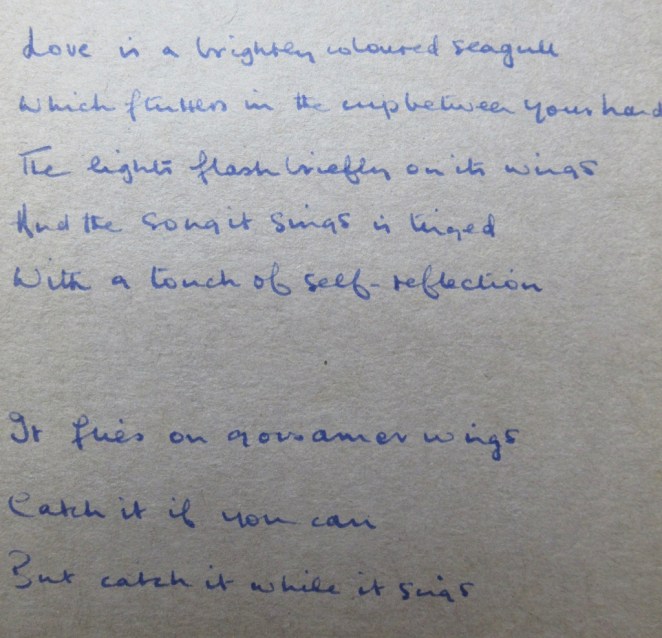 Love is a brightly coloured seagull
Which flutters in the cup between your hand
The lights flash briefly on its wings
And the song it sings is tinged
With a touch of self-reflection
It flies on gossamer wings
Catch it if you can
But catch it while it sings